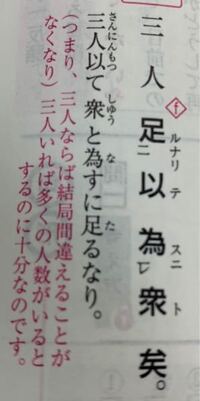 f
三人足ルナリ二以テ為スニレ衆ト矣。
さんにんもつ しゆう な た
三人以て衆と為すに足るなり。
(つまり、三人ならば結局間違えることが
なくなり)三人いれば多くの人数がいると
するのに十分なのです。